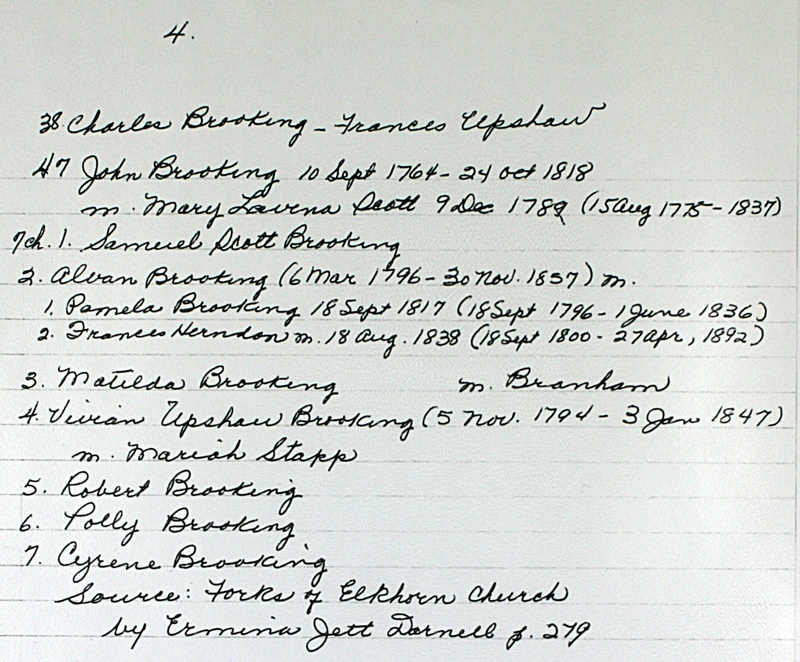 4.
38 Charles Brooking - Frances Upshaw
47 John Brooking 10 Sept 1764 - 24 Oct 1818
m. Mary Lavena Scott 9 Dec 1789 (15 Aug 1775 - 1837)
7ch. 1. Samuel Scott Brooking
2. Alvan Brooking (6 Mar 1796 - 30 Nov. 1857) m.
1. Pamela Brooking 18 Sept 1817 (18 Sept 1796 - 1 June 1836)
2. Frances Herndon m. 18 Aug. 1838 (18 Sept 1800 - 27 Apr, 1892)
3. Matilda Brooking m. Branham
4. Vivian Upshaw Brooking (5 Nov. 1794 - 3 Jan 1847)
m. Mariah Stapp
5. Robert Brooking
6. Polly Brooking
7. Cyrene Brooking
Source: Forks of Elkhorn Church
by Ermina Jett Darnell p. 279